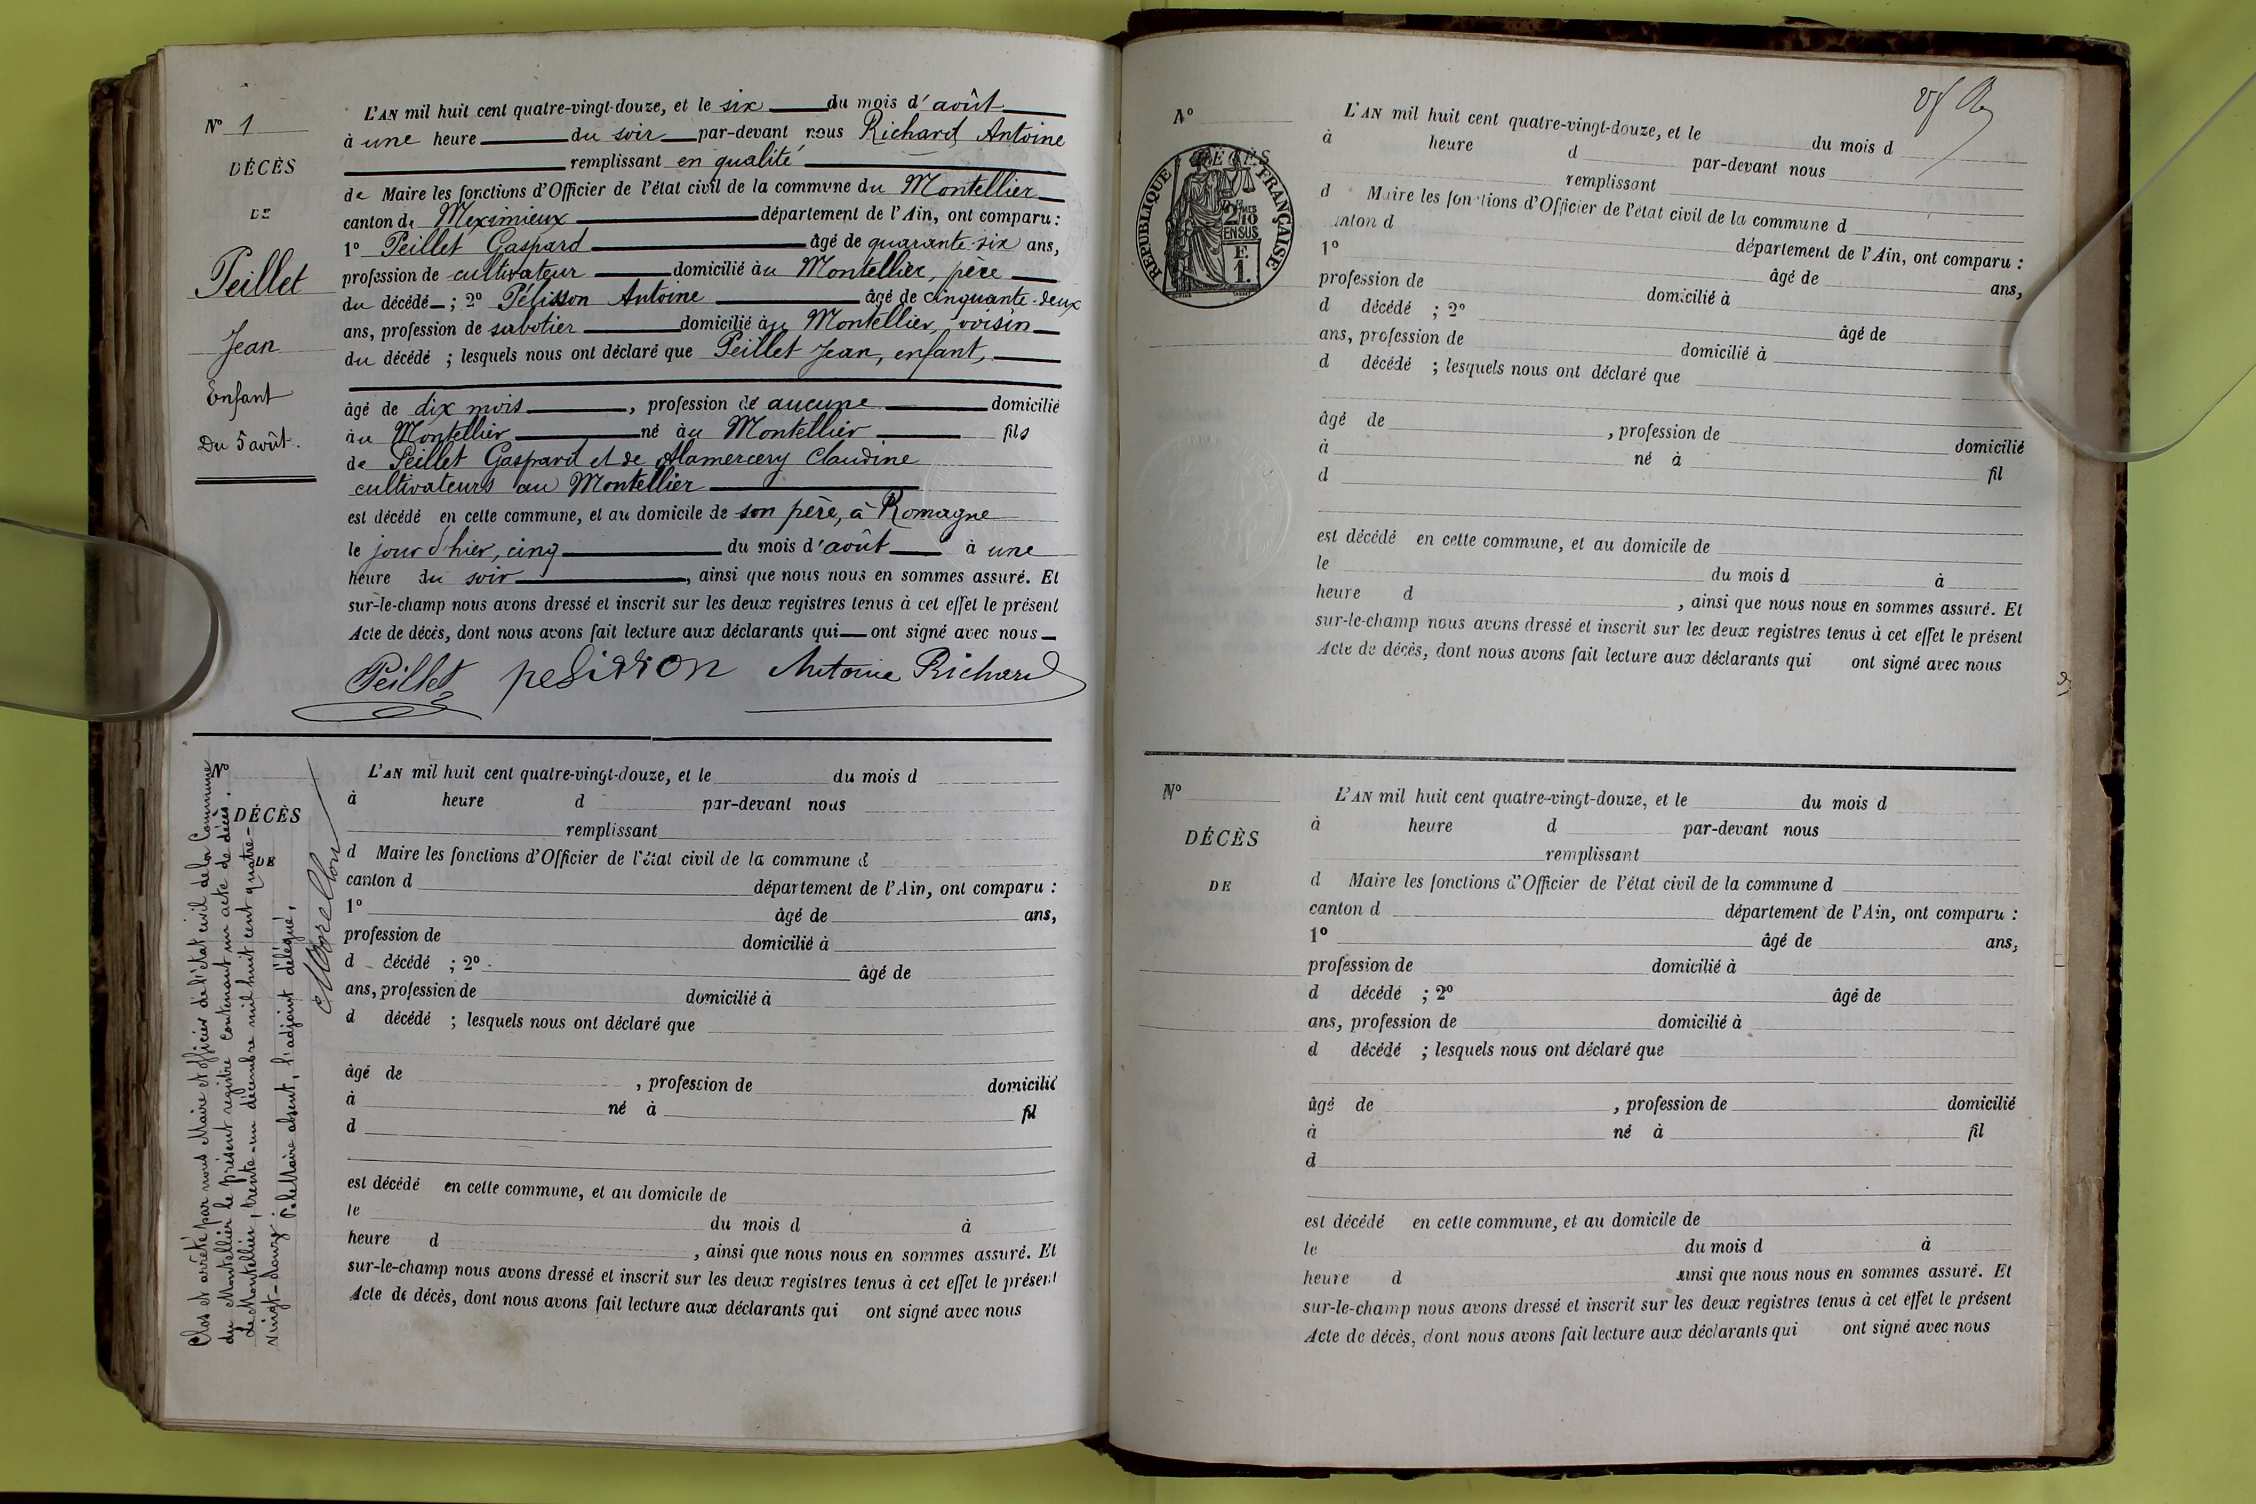 N° 1
DÉCÈS
DE
Peillet
Jean
Enfant
Du 5 août.
L'AN mil huit cent quatre-vingt-douze, et le six du mois d'août
à une heure du soir par-devant nous Richard Antoine
remplissant en qualité
de Maire les fonctions d'Officier de l'état civil de la commune du Montellier
canton de Meximieux département de l'Ain, ont comparu :
1° Peillet Gaspard âgé de quarante-six ans,
profession de cultivateur domicilié au Montellier, père
du décédé ; 2° Pélisson Antoine âgé de cinquante-deux
ans, profession de sabotier domicilié au Montellier, voisin
du décédé ; lesquels nous ont déclaré que Peillet Jean, enfant,
âgé de dix mois , profession de aucune domicilié
au Montellier né au Montellier fils
de Peillet Gaspard et de Alamercery Claudine
cultivateurs au Montellier
est décédé en cette commune, et au domicile de son père, à Romagne
le jour d'hier, cinq du mois d'août à une
heure du soir , ainsi que nous nous en sommes assuré. Et
sur-le-champ nous avons dressé et inscrit sur les deux registres tenus à cet effet le présent
Acte de décès, dont nous avons fait lecture aux déclarants qui ont signé avec nous
Peillet pelisson Antoine Richard
N°
DÉCÈS
DE
Clos et arrêté par nous Maire et officier de l'état civil de la Commune
du Montellier le présent registre contenant un acte de décès.
Le Montellier, trente-un décembre mil huit cent quatre-
vingt-douze.
P. le Maire absent, l'adjoint délégué,
L'AN mil huit cent quatre-vingt-douze, et le du mois d
à heure d par-devant nous
remplissant
d Maire les fonctions d'Officier de l'état civil de la commune d
canton d département de l'Ain, ont comparu :
1° âgé de ans,
profession de domicilié à
d décédé ; 2° âgé de
ans, profession de domicilié à
d décédé ; lesquels nous ont déclaré que
âgé de , profession de domicilié
à né à fil
d
est décédé en cette commune, et au domicile de
le du mois d à
heure d , ainsi que nous nous en sommes assuré. Et
sur-le-champ nous avons dressé et inscrit sur les deux registres tenus à cet effet le présent
Acte de décès, dont nous avons fait lecture aux déclarants qui ont signé avec nous
N°
DÉCÈS
RÉPUBLIQUE FRANÇAISE
2/10
EN SUS
F.
1.
L'AN mil huit cent quatre-vingt-douze, et le du mois d
à heure d par-devant nous
remplissant
d Maire les fonctions d'Officier de l'état civil de la commune d
canton d département de l'Ain, ont comparu :
1° âgé de ans,
profession de domicilié à
d décédé ; 2° âgé de
ans, profession de domicilié à
d décédé ; lesquels nous ont déclaré que
âgé de , profession de domicilié
à né à fil
d
est décédé en cette commune, et au domicile de
le du mois d à
heure d , ainsi que nous nous en sommes assuré. Et
sur-le-champ nous avons dressé et inscrit sur les deux registres tenus à cet effet le présent
Acte de décès, dont nous avons fait lecture aux déclarants qui ont signé avec nous
N°
DÉCÈS
DE
L'AN mil huit cent quatre-vingt-douze, et le du mois d
à heure d par-devant nous
remplissant
d Maire les fonctions d'Officier de l'état civil de la commune d
canton d département de l'Ain, ont comparu :
1° âgé de ans,
profession de domicilié à
d décédé ; 2° âgé de
ans, profession de domicilié à
d décédé ; lesquels nous ont déclaré que
âgé de , profession de domicilié
à né à fil
d
est décédé en cette commune, et au domicile de
le du mois d à
heure d ainsi que nous nous en sommes assuré. Et
sur-le-champ nous avons dressé et inscrit sur les deux registres tenus à cet effet le présent
Acte de décès, dont nous avons fait lecture aux déclarants qui ont signé avec nous